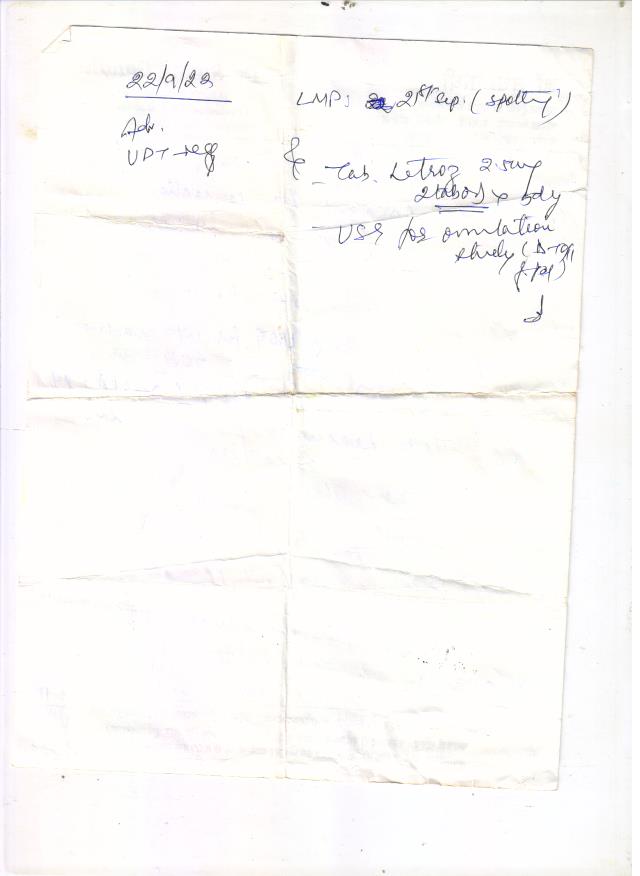 22/9/22
LMP: 21st Sep. (spotting)
Adv.
UPT-neg
- Tab. Letroz 2.5mg
2 tab OD x 5dy
- USG for ovulation
study (